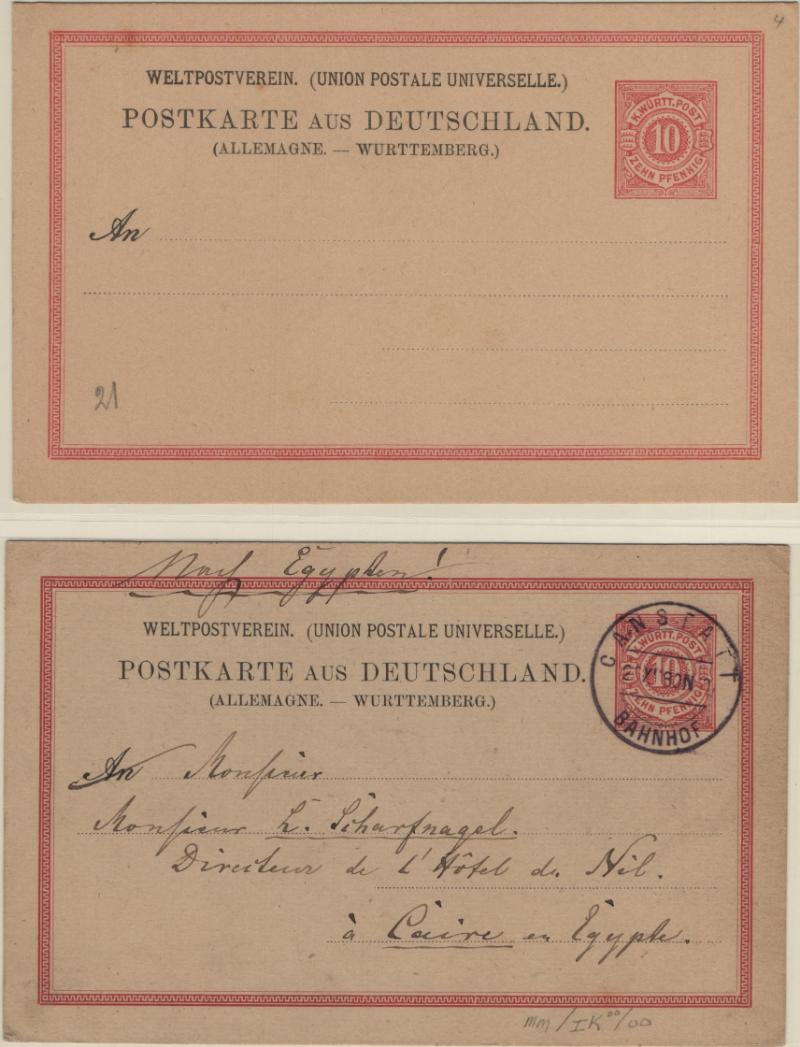 4
WELTPOSTVEREIN. (UNION POSTALE UNIVERSELLE.)
POSTKARTE AUS DEUTSCHLAND.
(ALLEMAGNE. — WURTTEMBERG.)
K. WÜRTT. POST
10
ZEHN PFENNIG
An
21
Nach Egypten!
WELTPOSTVEREIN. (UNION POSTALE UNIVERSELLE.)
POSTKARTE AUS DEUTSCHLAND.
(ALLEMAGNE. — WURTTEMBERG.)
K. WÜRTT. POST
10
ZEHN PFENNIG
CANSTATT
BAHNHOF
An Monsieur
Monsieur L. Scharfnagel.
Directeur de l'Hôtel du Nil.
à Caire en Égypte.
mm/IK